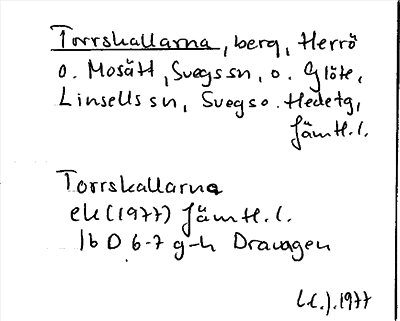 Torrskallarna, berg, Herrö
o. Mosätt, Svegs sn, o. Glöte,
Linsells sn, Svegs o. Hedetg,
Jämtl. l.
Torrskallarna
ek (1977) Jämtl. l.
16 D 6-7 g-h Dravagen
1977